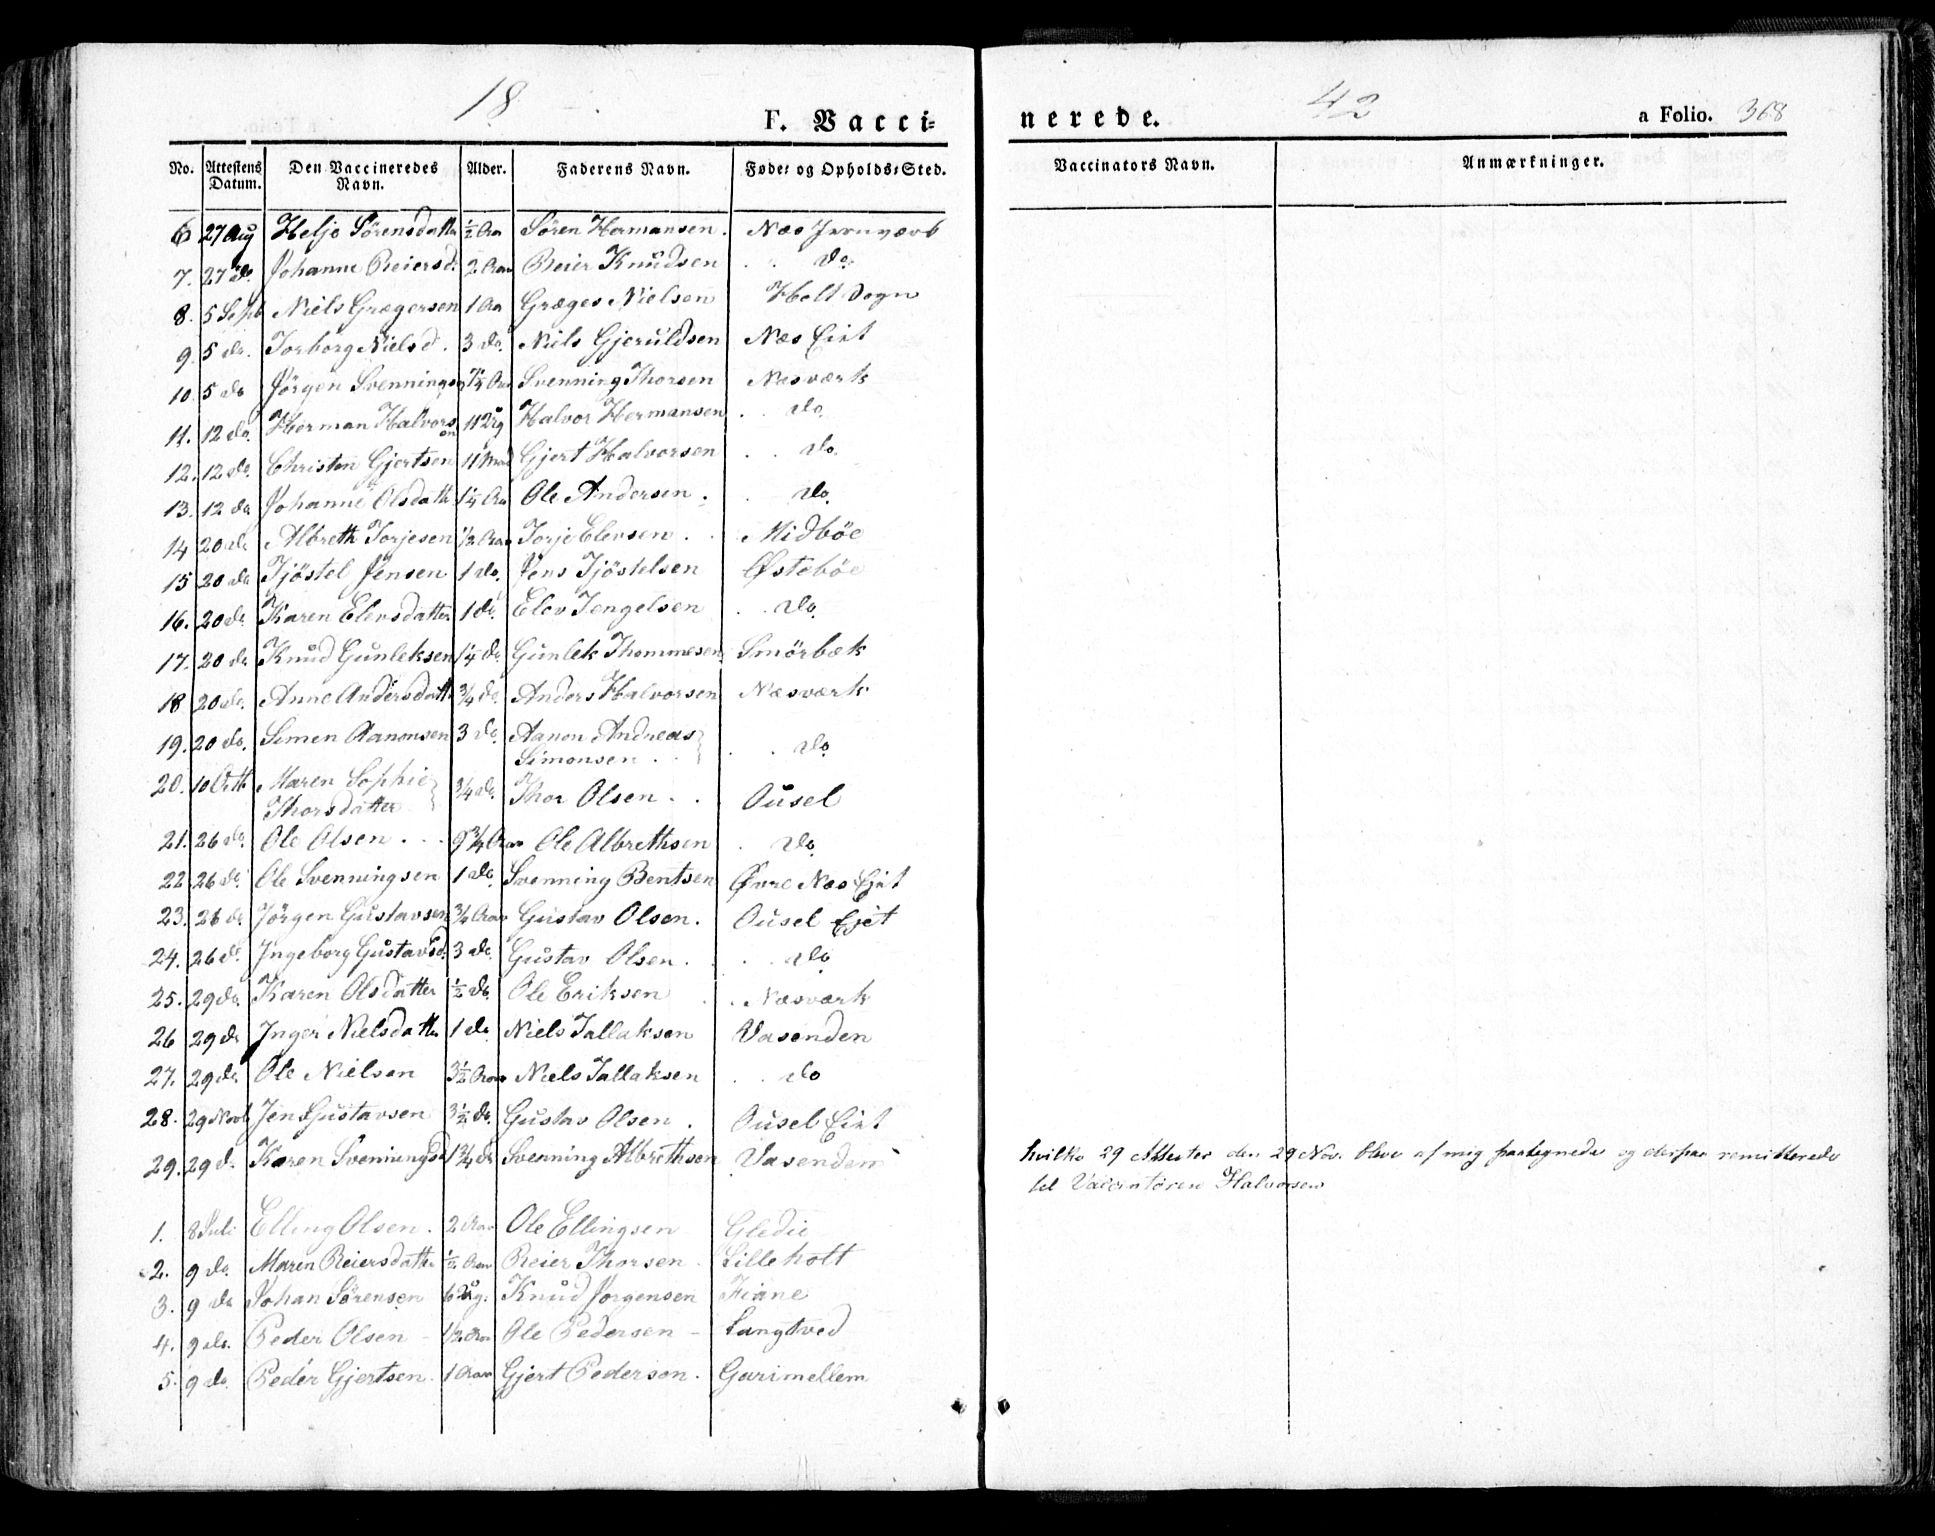 18 42
F. Vacci=
nerede.
a Folio. 368
No. Attestens Datum. Den Vaccineredes Navn. Alder. Faderens Navn. Føde= og Opholds=Sted. Vaccinators Navn. Anmærkninger.
6 27 Aug Helje Sörensdatter ½ Aar Sören Hermansen. Næs Jernværk
7. 27 do. Johanne Reiersd. 2 Aar Reier Knudsen do.
8. 5 Sept Niels Grægersen 1 Aar Græges Nielsen Holt Sogn
9. 5 do. Torborg Nielsd. 3 do. Niels Gjeruldsen Næs Eiet
10. 5 do Jörgen Svenningsen Svenning Thorsen Næsværk
11. 12 do. Herman Halvorsen 11 Halvor Hermansen do.
12. 12 do. Christen Gjertsen 11 Gjert Halvorsen do.
13. 12 do Johanne Olsdatter 1¼ Aar Ole Andersen. do.
14 20 do Albreth Torjesen ½ Aar Torje Elevsen. Midböe
15 20 do Tjöstel Jensen 1 do. Jens Tjöstelsen Østeböe
16. 20 do. Karen Elevsdatter 1 do. Elev Tengelsen do.
17. 20 do Knud Gunleksen 1¼ do. Gunlek Thommesen Smörbæk
18 20 do. Anne Andersdatter ¾ do. Anders Halvorsen Næsværk
19. 20 do. Simen Aanonsen 3 do. Aanon Andreas
Simonsen. do.
20. 10 Octb Maren Sophie
Thorsdatter ¾ do. Thor Olsen. Ousel
21. 26 do. Ole Olsen. 9¾ Aar Ole Albrethsen do.
22. 26 do. Ole Svenningsen 1 do. Svenning Bentsen Øvre Næs Ejet
23. 26 do Jörgen Gustavsen ¾ Aar Gustav Olsen. Ousel Ejet
24. 26 d. Ingeborg Gustavsd. 3 do. Gustav Olsen. do
25. 29 do. Karen Olsdatter ½ do. Ole Eriksen Næsværk
26 29 do Inger Nielsdatter 1 do. Niels Tallaksen Vasenden
27. 29 do. Ole Nielsen 3½ Aar Niels Tallaksen do
28. 29 Novb Jens Gustavsen 3½ do. Gustav Olsen. Ousel Eiet
29. 29 d. Karen Svenningsd 1¾ do Svenning Albrethsen Vasenden
hvilke 29 Attester den 29 Nov. bleve af mig paategnede og derpaa remitterede
til Vaccinatören Halvorsen
1. 8 Juli Elling Olsen. 2 Aar Ole Ellingsen Gledie
2. 9 do. Maren Reiersdatter ½ Aar Reier Thorsen. Lilleholt
3. 9 do Johan Sörensen 6 Knud Jörgensen Fiane
4. 9 do. Peder Olsen - 1½ Aar Ole Pedersen - Langtved
5. 9 do. Peder Gjertsen. 1 Aar Gjert Pedersen. Garimellem